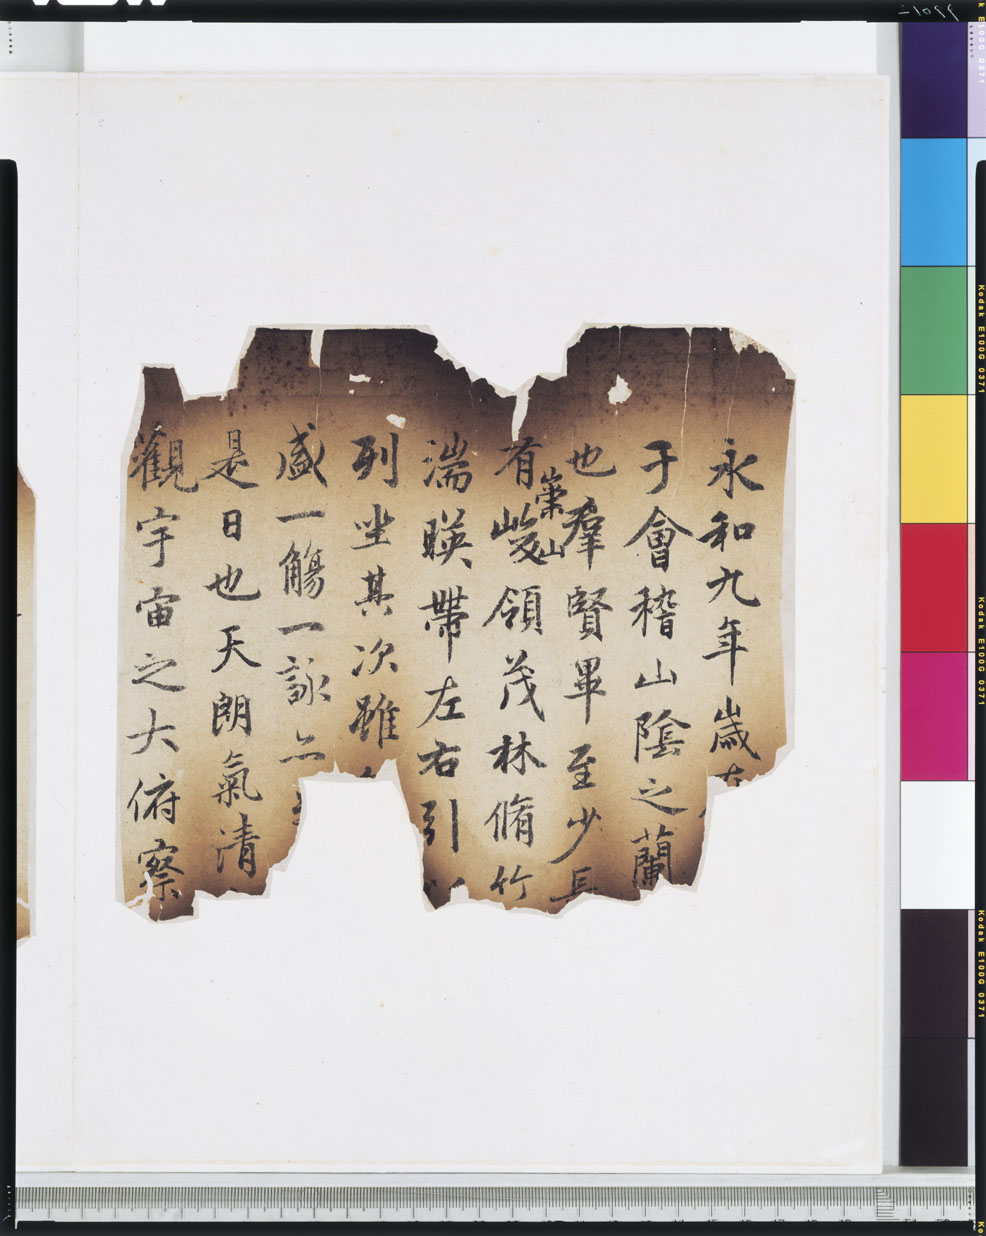 永和九年歲在
于會稽山陰之蘭
也羣賢畢至少長
崇山
有峻領茂林脩竹
湍暎帶左右引以
列坐其次雖
盛一觴一詠亦
是日也天朗氣清
觀宇宙之大俯察
Kodak E100G 0371
Kodak E100G 0371
Kodak E100G 0371